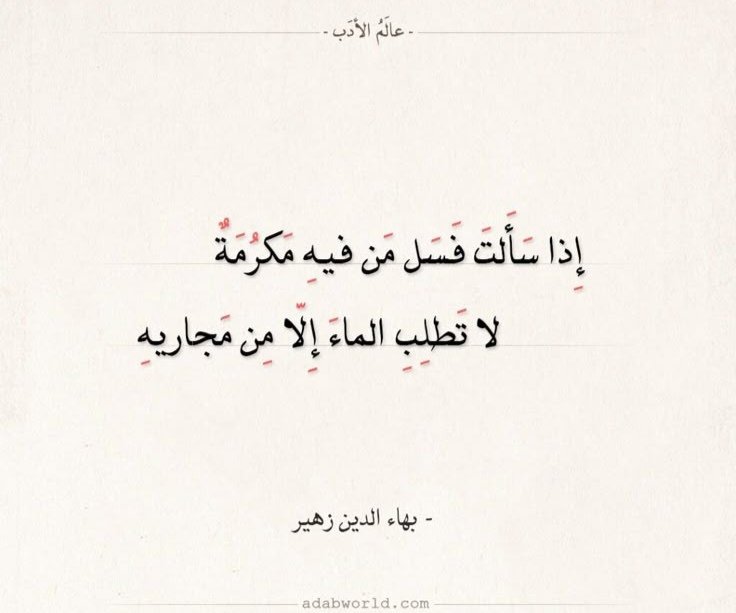 - عالَمُ الأدَب -
إِذا سَأَلتَ فَسَل مَن فيهِ مَكرُمَةٌ
لا تَطلِبِ الماءَ إِلّا مِن مَجاريهِ
- بهاء الدين زهير
adabworld.com